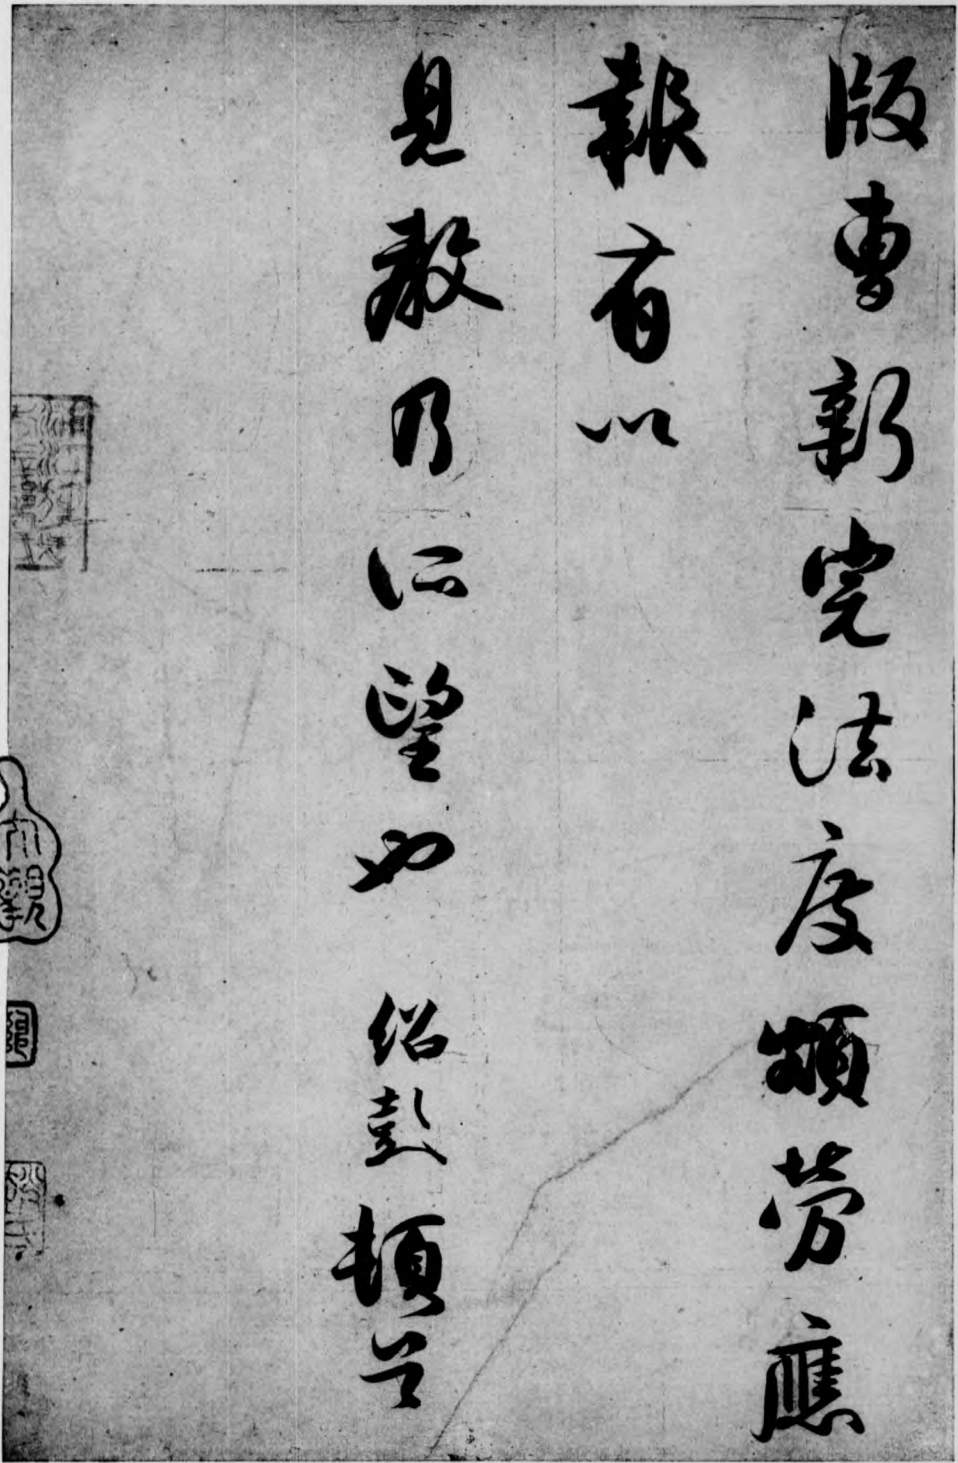 版曹新完法度頗勞應
報有以
見教乃所望也 紹彭頓首
大觀